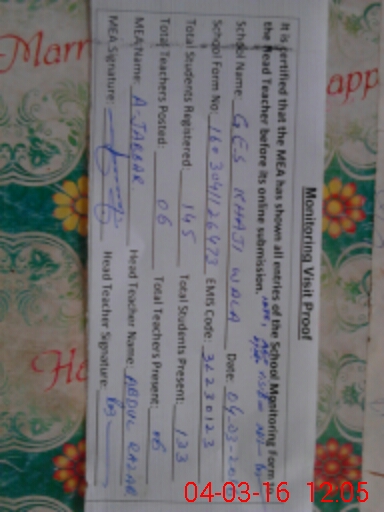 Monitoring Visit Proof
It is certified that the MEA has shown all entries of the School Monitoring Form to
the Head Teacher before its online submission.
School Name: GES KHAJI WALA Date: 04-03-20
School Form No: EMIS Code: 32230123
Total Students Registered: 145 Total Students Present: 133
Total Teachers Posted: 06 Total Teachers Present: 06
MEA Name: A. JABBAR Head Teacher Name: ABDUL RAZAQ
MEA Signature: Head Teacher Signature:
04-03-16 12:05